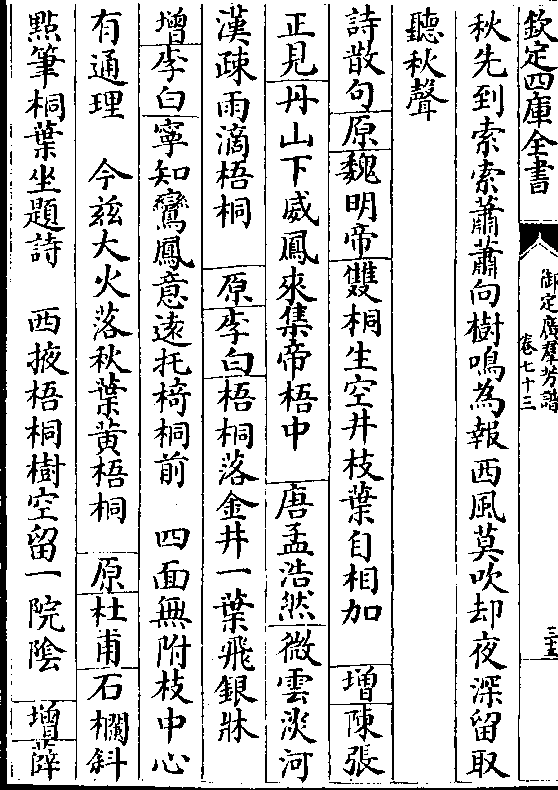 欽定四庫全書
御定廣羣芳譜
卷七十三
三五
秋先到索索蕭蕭向樹鳴為報西風莫吹却夜深留取
聽秋聲
詩散句原魏明帝雙桐生空井枝葉自相加 增陳張
正見丹山下威鳳來集帝梧中 唐孟浩然微雲淡河
漢疎雨滴梧桐 原李白梧桐落金井一葉飛銀牀
增李白寧知鸞鳳意遠托椅桐前 四面無附枝中心
有通理 今兹大火落秋葉黄梧桐 原杜甫石欄斜
點筆桐葉坐題詩 西掖梧桐樹空留一院陰 增薛